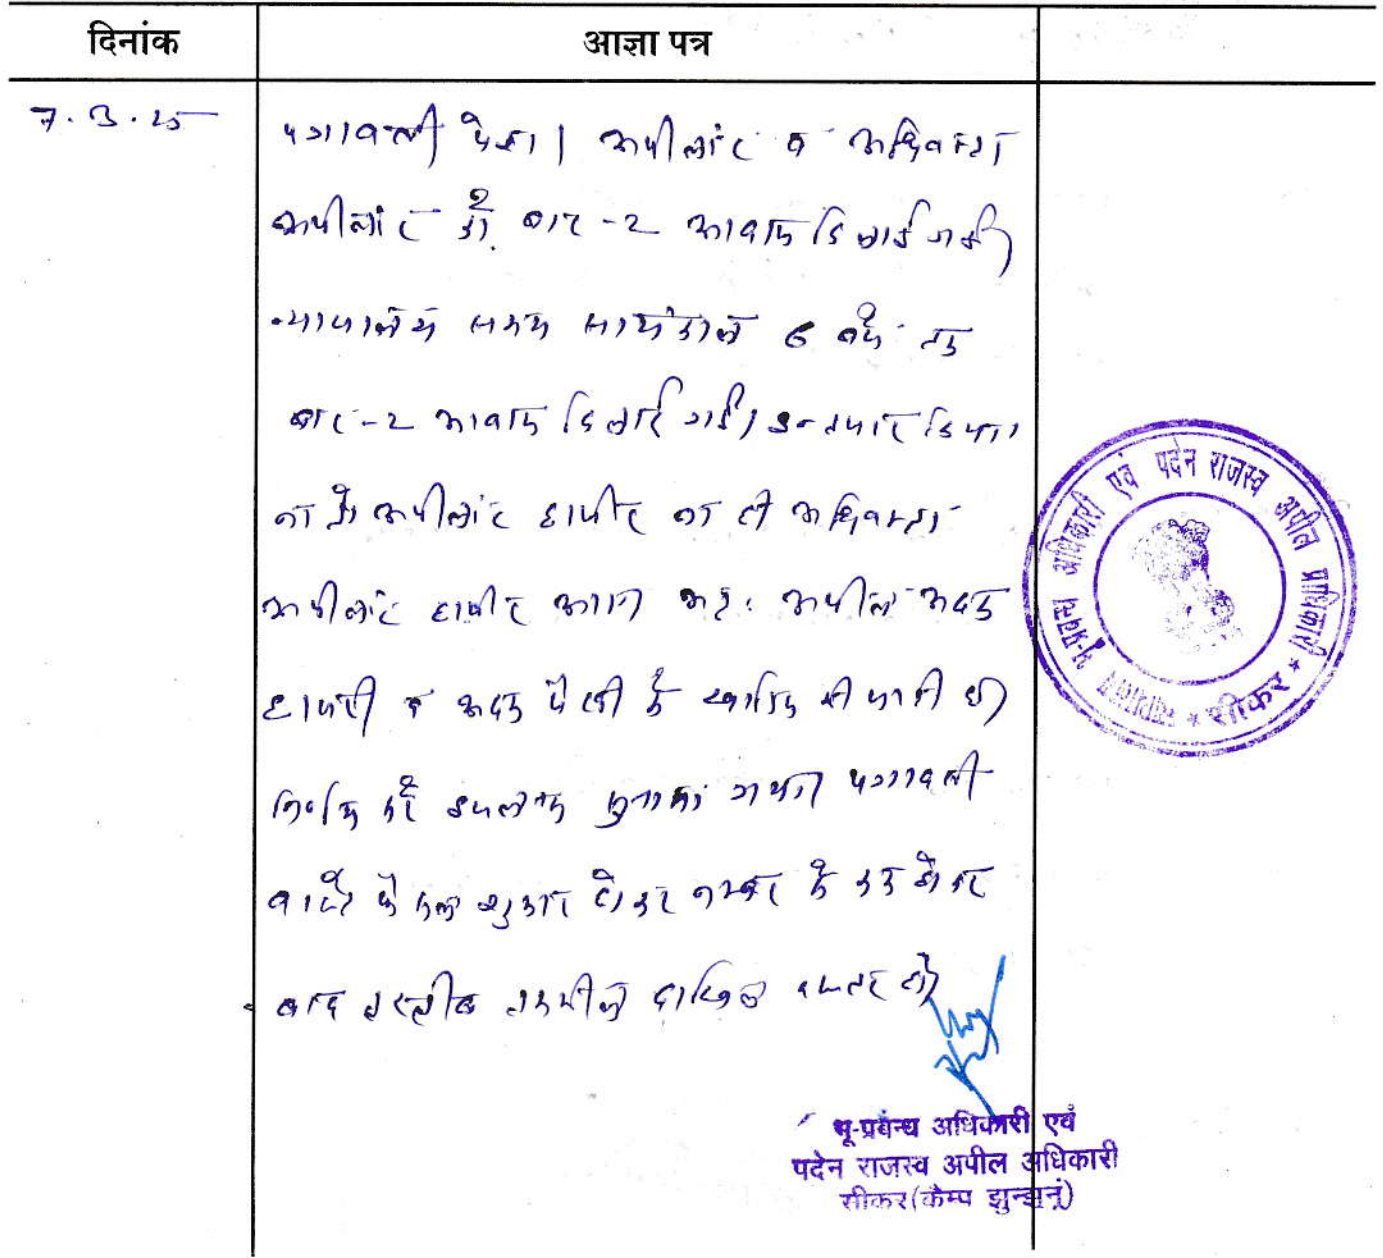 दिनांक
आज्ञा पत्र
7.3.25
पत्रावली पेश। अपीलांट व अधिवक्ता
अपीलांट को बार-2 आवाज दिलाई गई।
न्यायालय समय सायंकाल 6 बजे तक
बार-2 आवाज दिलाई गई। इन्तजार किया।
ना तो अपीलांट हाजीर ना ही अधिवक्ता
अपीलांट हाजीर आया अतः अपील अदम
हाजरी व अदम पैरवी में खारिज की जाती है।
निर्णय सुनाया गया। पत्रावली
बाद फैसल शुमार होकर नम्बर से कम होकर
बाद तरतीब तकमील दाखिल दफ्तर हो।
भू-प्रबन्ध अधिकारी एवं पदेन राजस्व अपील प्राधिकारी
* सीकर *
भू-प्रबन्ध अधिकारी एवं
पदेन राजस्व अपील अधिकारी
सीकर(कैम्प झुन्झुनूं)